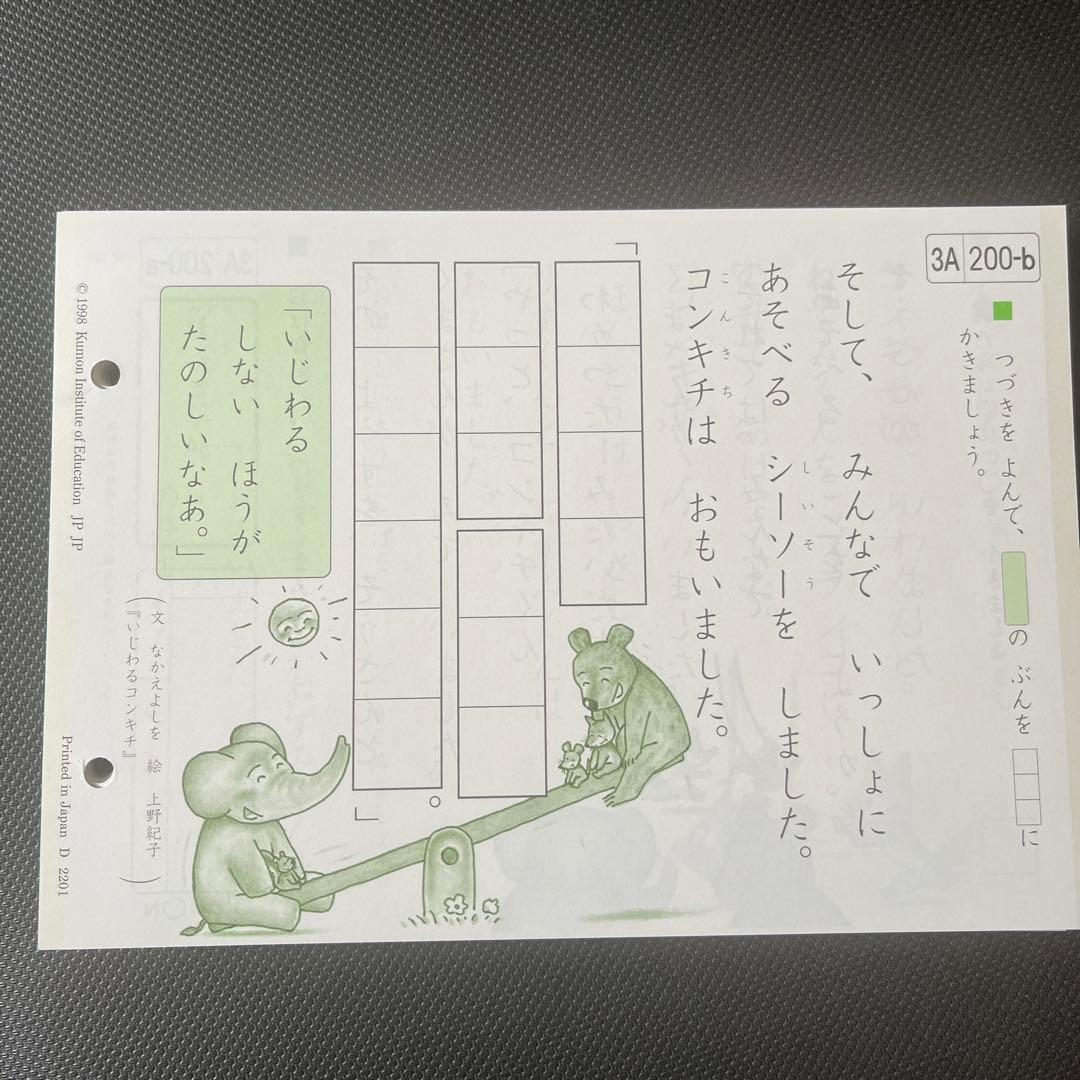 3A 200-b
■ つづきを よんで、 の ぶんを に
かきましょう。
そして、 みんなで いっしょに
あそべる シーソーを しました。
しいそう
コンキチは おもいました。
こんきち
「
。」
「いじわる
しない ほうが
たのしいなあ。」
(文 なかえよしを 絵 上野紀子)
『いじわるコンキチ』
© 1998 Kumon Institute of Education JP JP
Printed in Japan D 2201